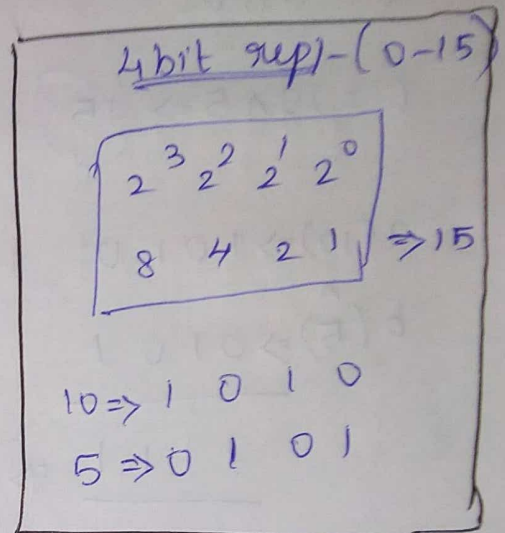 4 bit repl-(0-15)
2³ 2² 2¹ 2⁰
8 4 2 1 => 15
10 => 1 0 1 0
5 => 0 1 0 1